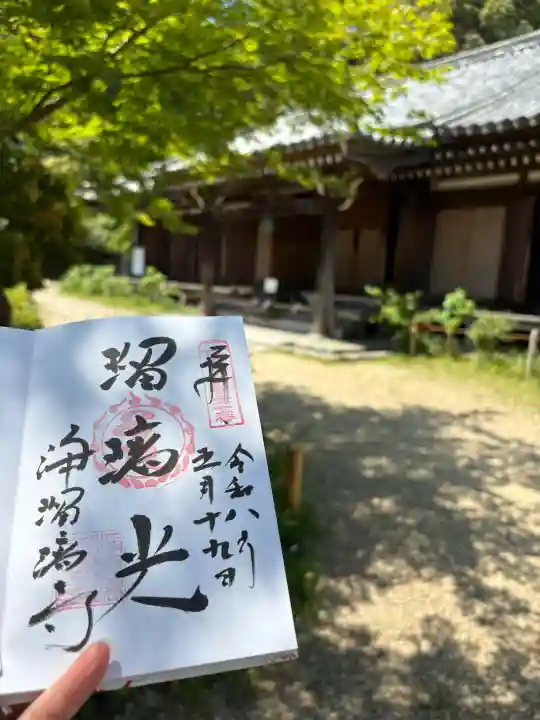 奉拝
令和八年
五月十九日
瑠璃光
浄瑠璃寺